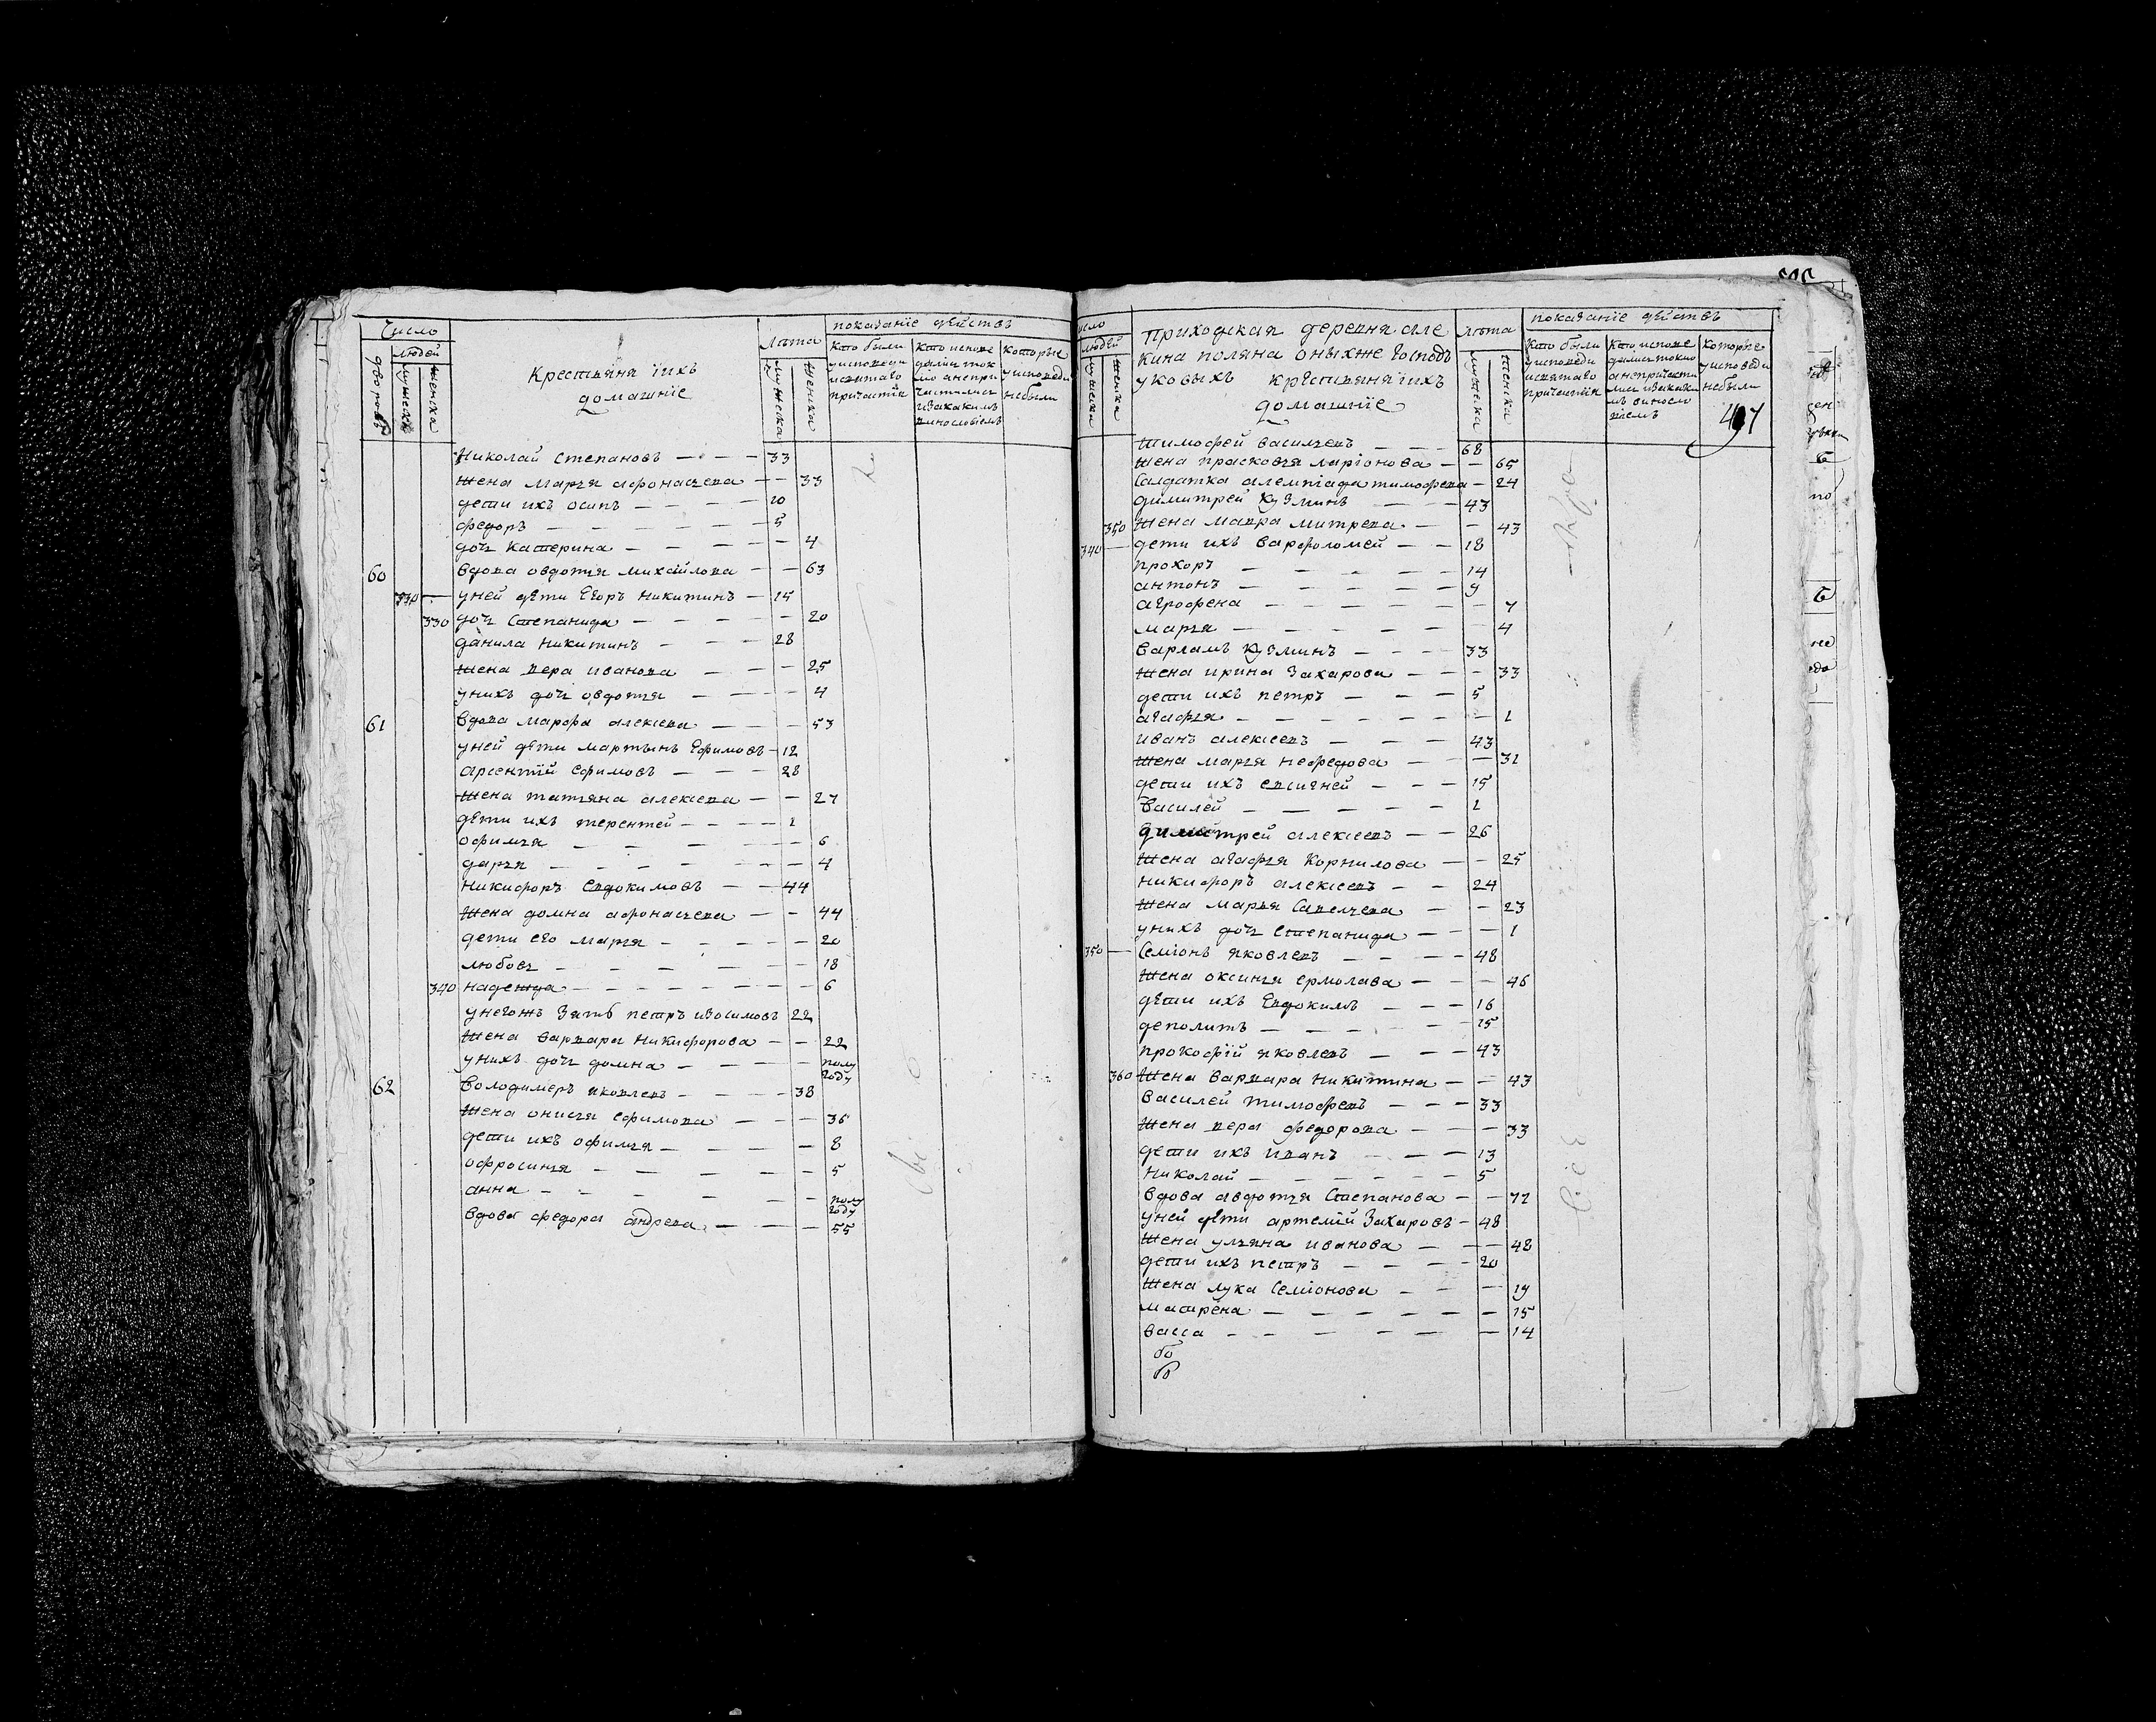 Число
людей
дворовъ
мужеска
женска
Крестьяня їихъ
домашнїе
лѣта
мужеска
женска
показанїе дѣйствъ
Кто были
уисповеди
исвятаго
причастїя
Кто испове
дались ток
мо анепри
частились
изакакимъ
винословїемъ
которые
уисповеди
небыли
Николай степановъ — — — 33
жена марья афонасьева — — 33
дети ихъ осипъ — — — 10
федоръ — — — 5
дочь катерина — — — 4
60 вдова овдотья михайлова — — 63
330 — уней дѣти Егоръ никитинъ — 15
330 дочь Степанида — — — 20
данила никитинъ — — 28
жена вера иванова — — — 25
унихъ дочь овдотья — — — 4
61 вдова марфа алексева — — — 53
уней дѣти мартынъ Ефимовъ — 12
арсентїй ефимовъ — — — 28
жена татьяна алексева — — 27
дѣти ихъ терентей — — — 1
офимья — — — 6
дарья — — — 4
никифоръ Евдокимовъ — — 44
жена домна афонасьева — — 44
дети его марья — — — 20
любовь — — — 18
340 надежда — — — 6
унегожъ зять петръ изосимовъ 22
жена варвара никифорова — — 22
унихъ дочь домна — — — полу
году
62 володимеръ яковлевъ — — — 38
жена онисья ефимова — — — 36
дети ихъ офимья — — — 8
офросинья — — — 5
анна — — — полу
году
вдова федора андрева — — — 55
число
людей
мужеска
женска
приходская деревня але
кина поляна оныхже Господъ
уковыхъ крестьяня їихъ
домашнїе
лѣта
мужеска
женска
показанїе дѣйствъ
Кто были
уисповеди
исвятаго
причастїя
Кто испове
дались токмо
анепричасти
лись изакаки
мъ виносло
вїемъ
которые
уисповеди
небыли
497
тимофей васильевъ — — — 68
жена прасковья ларїонова — — 65
Салдатка алемпїада тимофева — 24
димитрей кузминъ — — 43
350 жена мавра митрева — — 43
340 — дети ихъ варфоломей — — 18
прохоръ — — — 14
антонъ — — — 9
аграфена — — — 7
марья — — — 4
варламъ кузминъ — — — 33
жена ирина захарова — — — 33
дети ихъ петръ — — — 5
агафья — — — 1
иванъ алексеевъ — — — 43
жена марья нефедова — — — 31
дети ихъ евсигней — — — 15
василей — — — 1
димитрей алексеевъ — — 26
жена агафья корнилова — — 25
никифоръ алексеевъ — — 24
жена марья Савельева — — 23
унихъ дочь Степанида — — — 1
350 — Семїонъ яковлевъ — — — 48
жена оксинья ермолава — — — 46
дѣти ихъ Евдокимъ — — — 16
деполитъ — — — 15
прокофїй яковлевъ — — — 43
360 жена варвара никитина — — 43
василей тимофевъ — — — 33
жена вера федорова — — — 33
дети ихъ иванъ — — — 13
николай — — — 5
вдова авдотья Степанова — — 71
уней дѣти артемїй захаровъ — 48
жена ульяна иванова — — — 48
дети ихъ петръ — — — 20
жена лука Семїонова — — — 19
матрена — — — 15
васса — — — 14